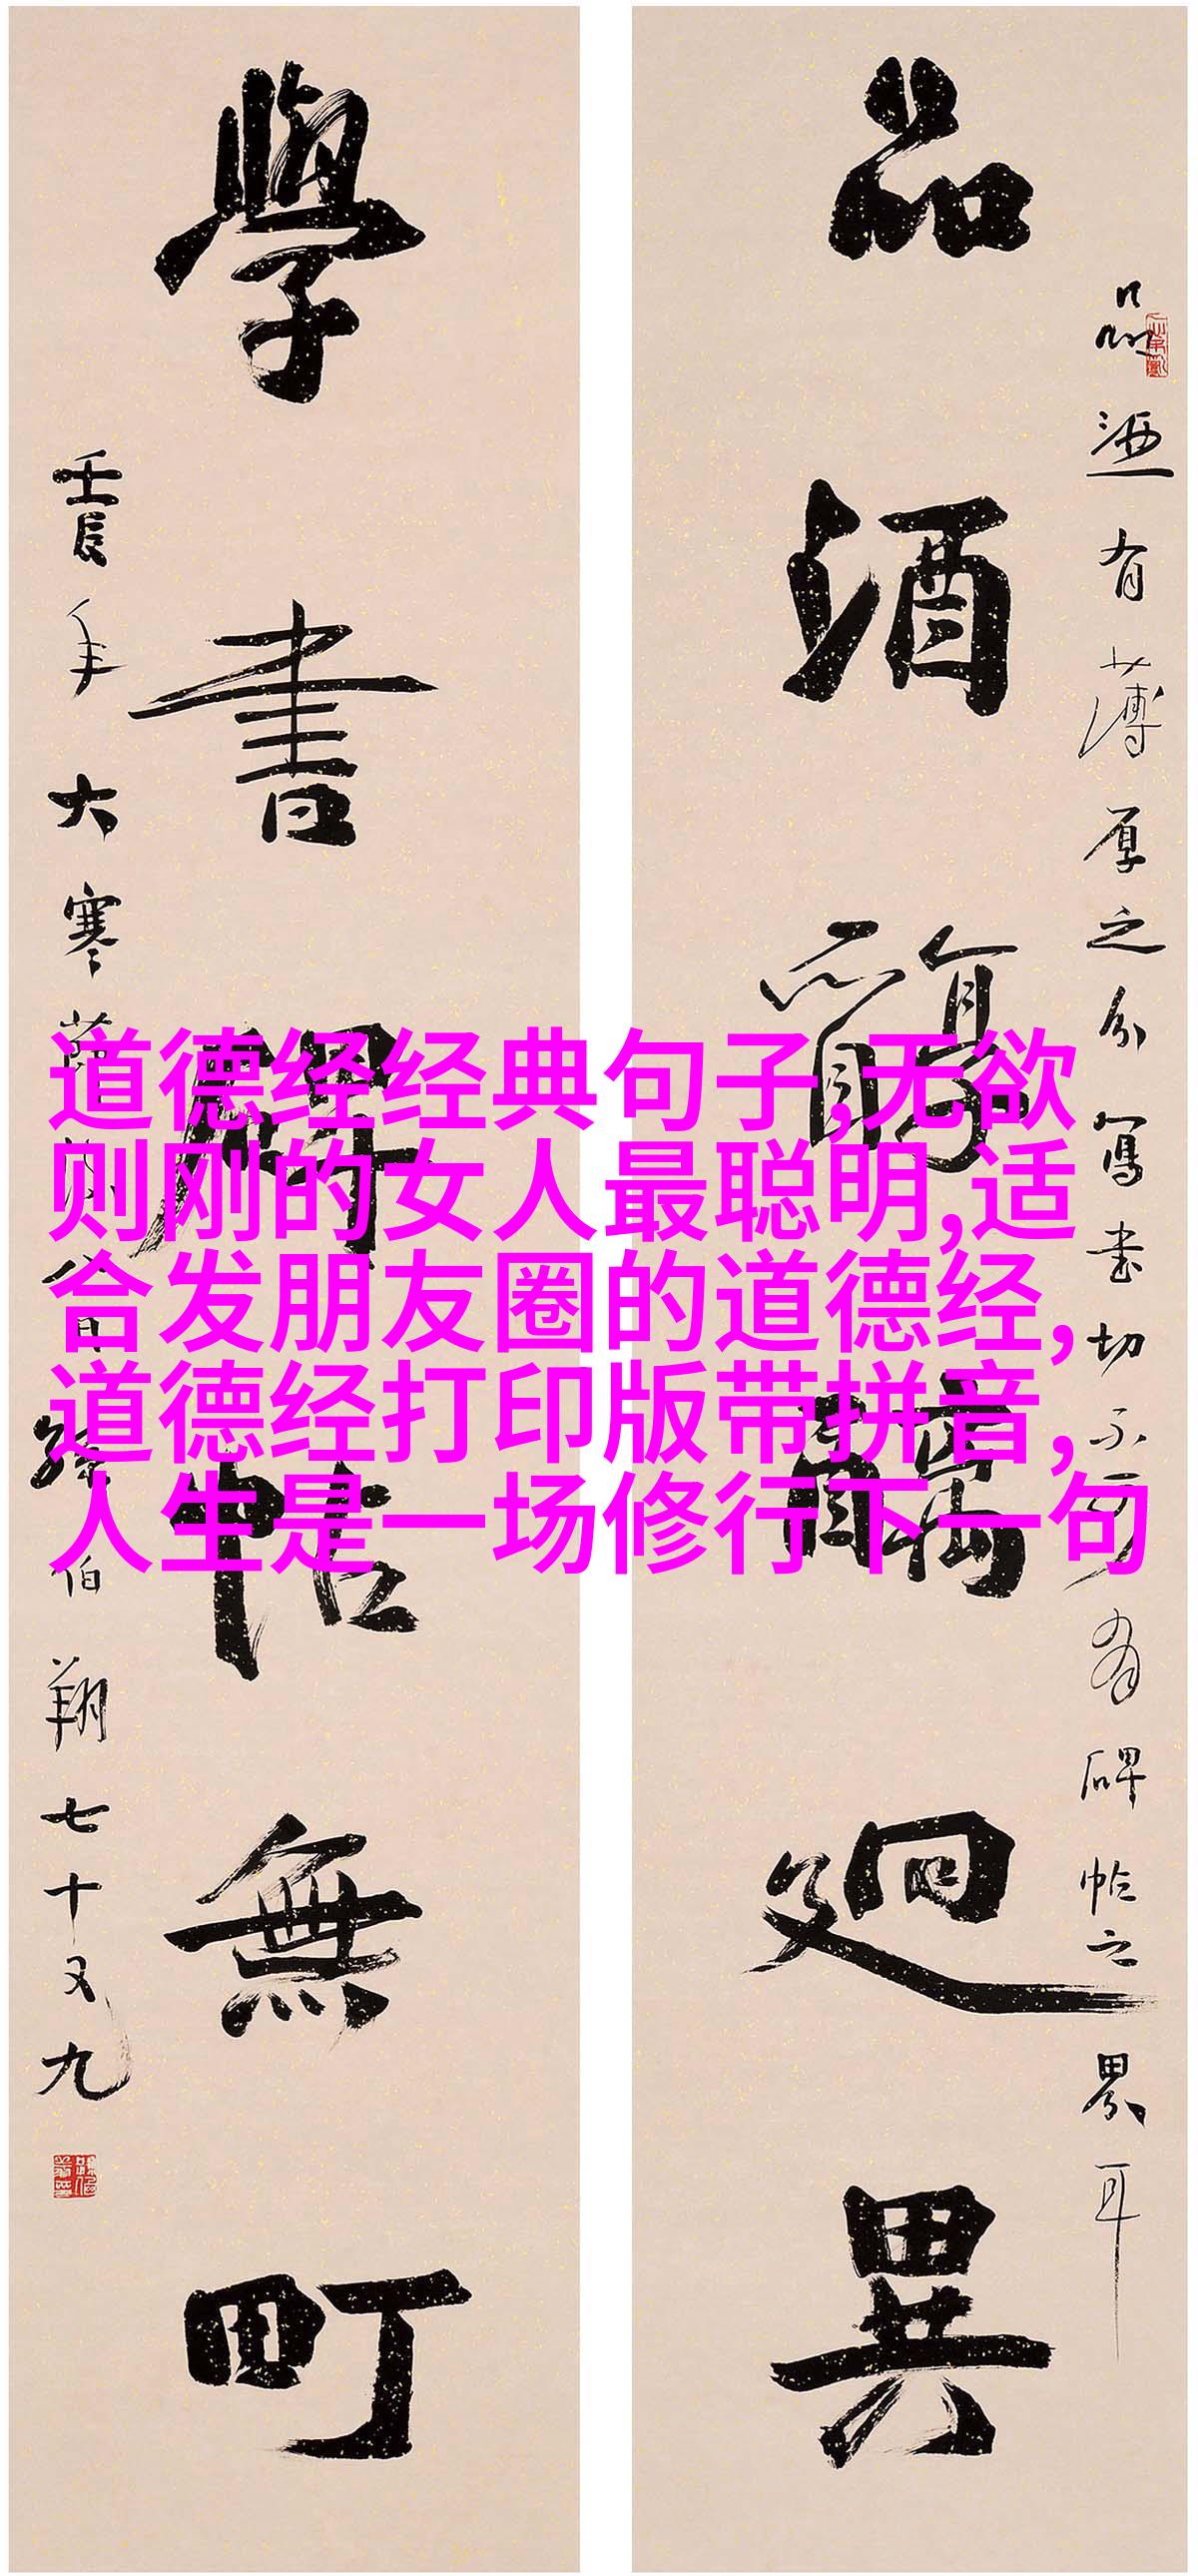 品酒有薄厚之分寫書切不可有碑帖之界耳
品酒醇醨廻異
學書碑帖無町
壬辰年大寒節日孫伯翔七十又九
道德经经典句子,无欲
则刚的女人最聪明,适
合发朋友圈的道德经,
道德经打印版带拼音,
人生是一场修行下一句